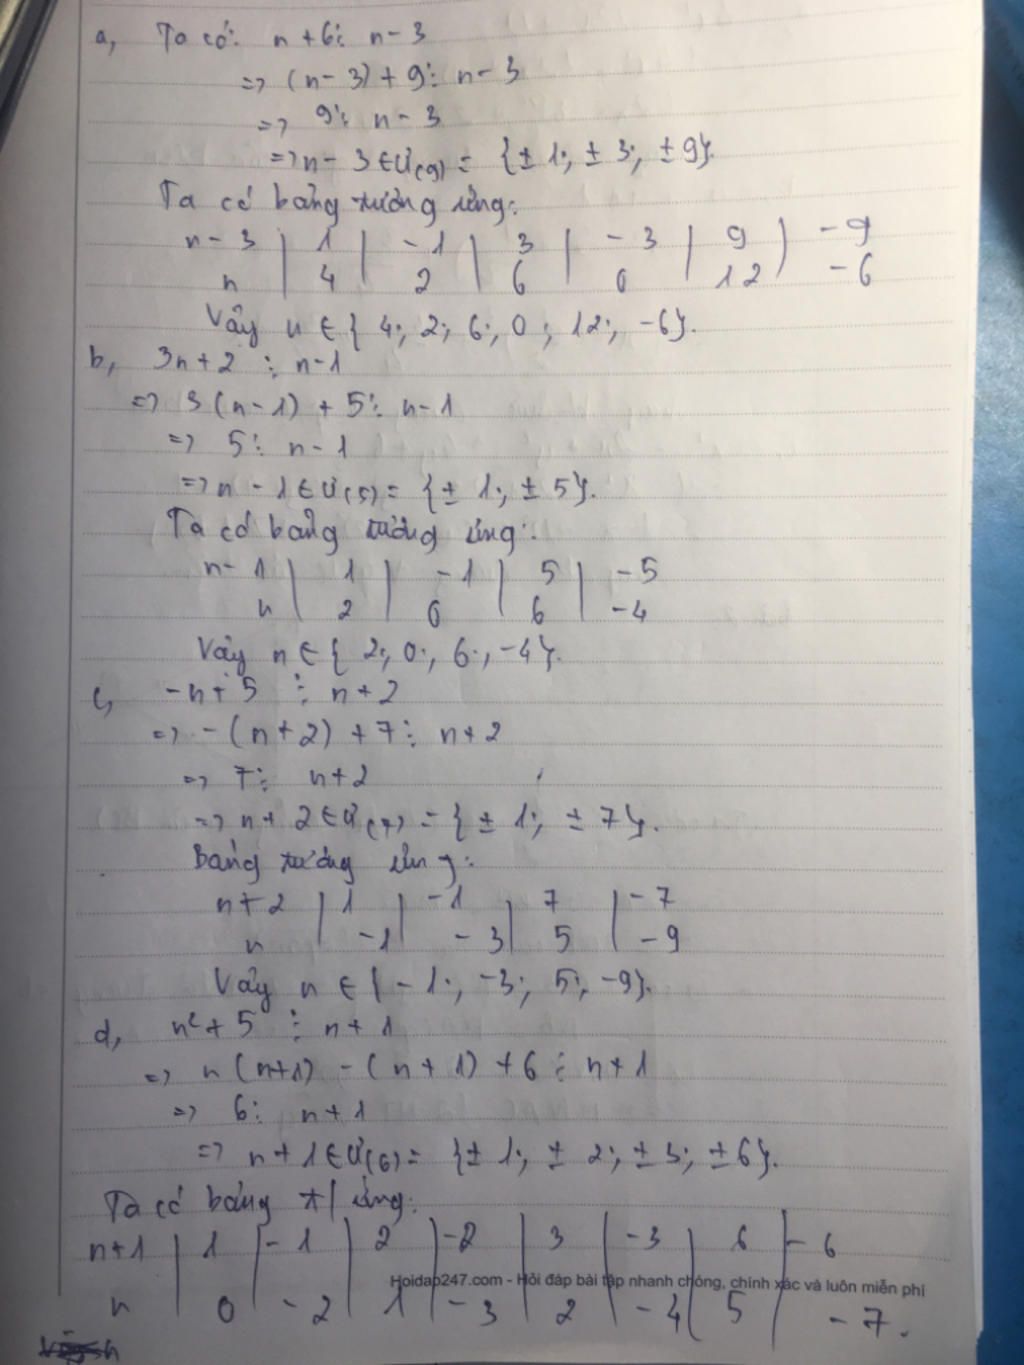 a, Ta có: n + 6 ⋮ n - 3
=> (n - 3) + 9 ⋮ n - 3
=> 9 ⋮ n - 3
=> n - 3 ∈ Ư(9) = {± 1; ± 3; ± 9}.
Ta có bảng tương ứng:
n - 3 | 1 | - 1 | 3 | - 3 | 9 | - 9
n | 4 | 2 | 6 | 0 | 12 | - 6
Vậy n ∈ { 4; 2; 6; 0; 12; -6}.
b, 3n + 2 ⋮ n - 1
=> 3(n - 1) + 5 ⋮ n - 1
=> 5 ⋮ n - 1
=> n - 1 ∈ Ư(5) = {± 1; ± 5}.
Ta có bảng tương ứng:
n - 1 | 1 | - 1 | 5 | - 5
n | 2 | 0 | 6 | - 4
Vậy n ∈ { 2; 0; 6; -4}.
c, -n + 5 ⋮ n + 2
=> -(n + 2) + 7 ⋮ n + 2
=> 7 ⋮ n + 2
=> n + 2 ∈ Ư(7) = {± 1; ± 7}.
Bảng tương ứng:
n + 2 | 1 | - 1 | 7 | - 7
n | - 1 | - 3 | 5 | - 9
Vậy n ∈ {- 1; -3; 5; -9}.
d, n² + 5 ⋮ n + 1
=> n(n+1) - (n + 1) + 6 ⋮ n + 1
=> 6 ⋮ n + 1
=> n + 1 ∈ Ư(6) = {± 1; ± 2; ± 3; ± 6}.
Ta có bảng t/ ứng:
n + 1 | 1 | - 1 | 2 | - 2 | 3 | - 3 | 6 | - 6
Hoidap247.com - Hỏi đáp bài tập nhanh chóng, chính xác và luôn miễn phí
n | 0 | - 2 | 1 | - 3 | 2 | - 4 | 5 | - 7.